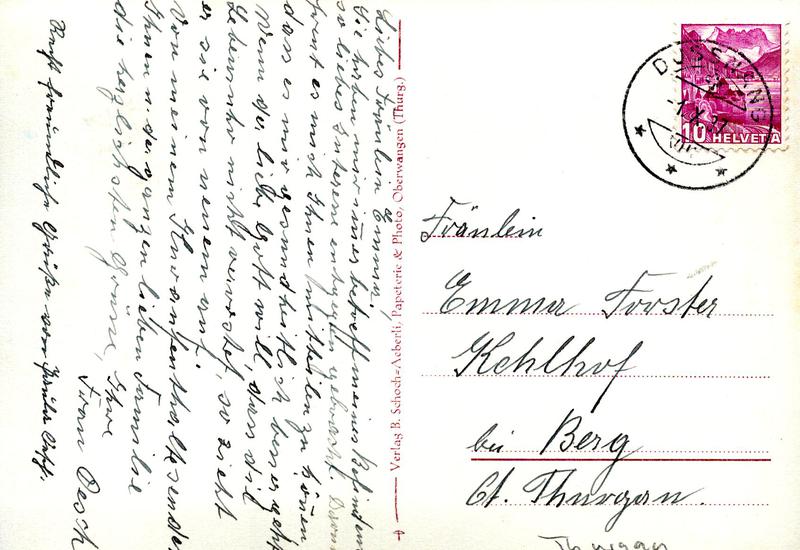 Liebes Fräulein Emma,
Sie haben mir immer betreff meines Befindens
so liebes Interesse entgegen gebracht. Darum
freut es mich Ihnen mitteilen zu können
dass es mir gesundheitlich besser geht
Wenn der liebe Gott will, dass die
Lebensuhr nicht verrostet, so zieht
er sie von neuem auf.
Von meinem Kuraufenthaltsende
Ihnen u. der ganzen lieben Familie
die herzlichsten Grüsse, Ihre
Frau Oesch
Recht freundliche Grüße von
Verlag B. Schoch-Aeberli, Papeterie & Photo, Oberwangen (Thurg.)
DUSSNANG
10 HELVETIA
Fräulein
Emma Forster
Kehlhof
bei Berg
Ct. Thurgau.
Thurgau